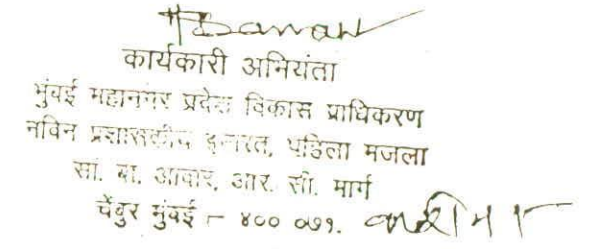 कार्यकारी अभियंता
मुंबई महानगर प्रदेश विकास प्राधिकरण
नविन प्रशासकीय इमारत, पहिला मजला
सां. बा. आवार, आर. सी. मार्ग
चेंबुर मुंबई - ४०० ०७१.